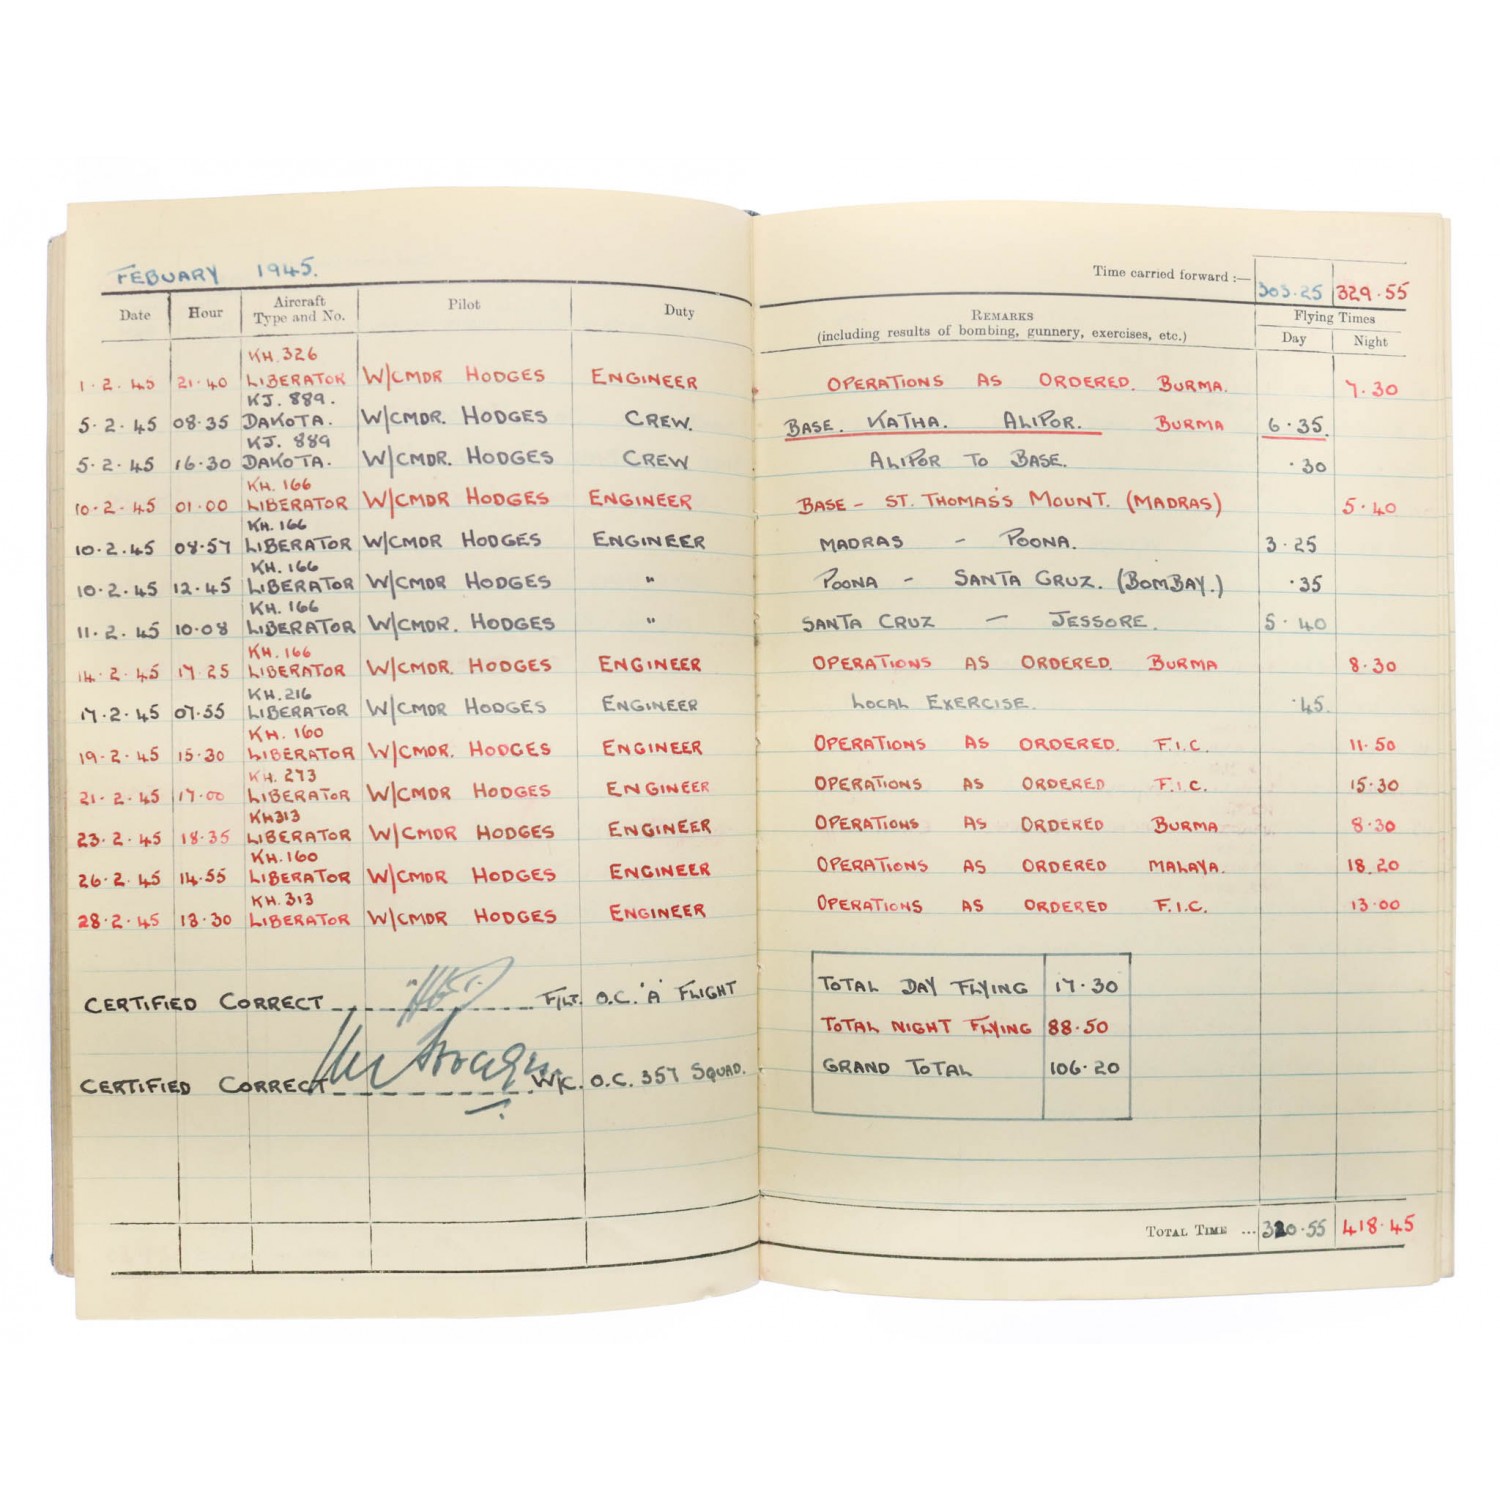 FEBUARY 1945.
Time carried forward :— 303.25 329.55
Date Hour Aircraft Type and No. Pilot Duty REMARKS (including results of bombing, gunnery, exercises, etc.) Flying Times Day Night
1.2.45 21.40 KH.326 LIBERATOR W/CMDR HODGES ENGINEER OPERATIONS AS ORDERED. BURMA. 7.30
5.2.45 08.35 KJ.889. DAKOTA. W/CMDR. HODGES CREW. BASE. KATHA. ALIPOR. BURMA 6.35.
5.2.45 16.30 KJ.889 DAKOTA. W/CMDR. HODGES CREW ALIPOR TO BASE. .30
10.2.45 01.00 KH.166 LIBERATOR W/CMDR HODGES ENGINEER BASE - ST. THOMAS'S MOUNT. (MADRAS) 5.40
10.2.45 08.57 KH.166 LIBERATOR W/CMDR HODGES ENGINEER MADRAS - POONA. 3.25
10.2.45 12.45 KH.166 LIBERATOR W/CMDR HODGES " POONA - SANTA CRUZ. (BOMBAY.) .35
11.2.45 10.08 KH.166 LIBERATOR W/CMDR. HODGES " SANTA CRUZ - JESSORE. 5.40
14.2.45 17.25 KH.166 LIBERATOR W/CMDR HODGES ENGINEER OPERATIONS AS ORDERED. BURMA 8.30
17.2.45 07.55 KH.216 LIBERATOR W/CMDR HODGES ENGINEER LOCAL EXERCISE. .45.
19.2.45 15.30 KH.160 LIBERATOR W/CMDR. HODGES ENGINEER OPERATIONS AS ORDERED. F.I.C. 11.50
21.2.45 17.00 KH.273 LIBERATOR W/CMDR HODGES ENGINEER OPERATIONS AS ORDERED F.I.C. 15.30
23.2.45 18.35 KH313 LIBERATOR W/CMDR HODGES ENGINEER OPERATIONS AS ORDERED BURMA 8.30
26.2.45 14.55 KH.160 LIBERATOR W/CMDR HODGES ENGINEER OPERATIONS AS ORDERED MALAYA. 18.20
28.2.45 13.30 KH.313 LIBERATOR W/CMDR HODGES ENGINEER OPERATIONS AS ORDERED F.I.C. 13.00
CERTIFIED CORRECT F/LT. O.C. 'A' FLIGHT
CERTIFIED CORRECT W/C. O.C. 357 SQUAD.
TOTAL DAY FLYING 17.30
TOTAL NIGHT FLYING 88.50
GRAND TOTAL 106.20
TOTAL TIME ... 320.55 418.45